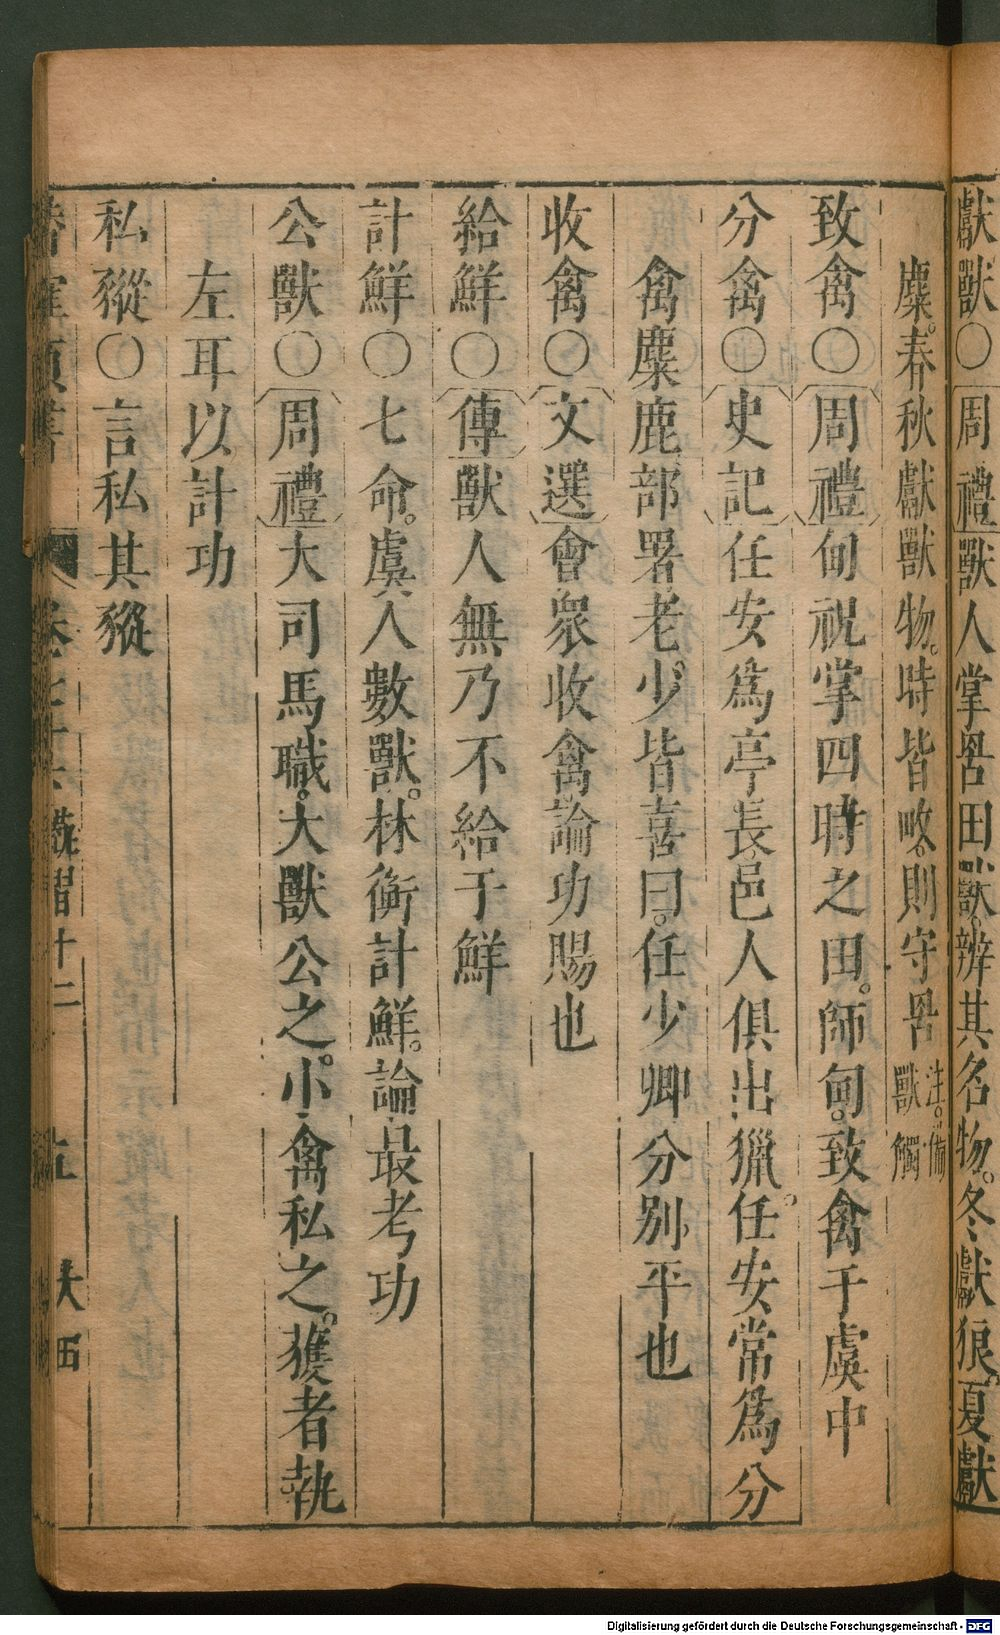 獻獸○周禮獸人掌罟田獸。辨其名物。冬獻狼。夏獻
麋。春秋獻獸物。時皆略。則守罟注。備獸觸
致禽○周禮甸祝掌四時之田。師甸。致禽于虞中
分禽○史記任安爲亭長。邑人俱出獵。任安常爲分
禽麋鹿部署老少。皆喜曰。任少卿分別平也
收禽○文選會衆收禽論功賜也
給鮮○傳獸人無乃不給于鮮
計鮮○七命。虞人數獸。林衡計鮮。論最考功
公獸○周禮大司馬職。大獸公之。小禽私之。獲者執
左耳以計功
私豵○言私其豵
卷七十六 十二
Digitalisierung gefördert durch die Deutsche Forschungsgemeinschaft - DFG